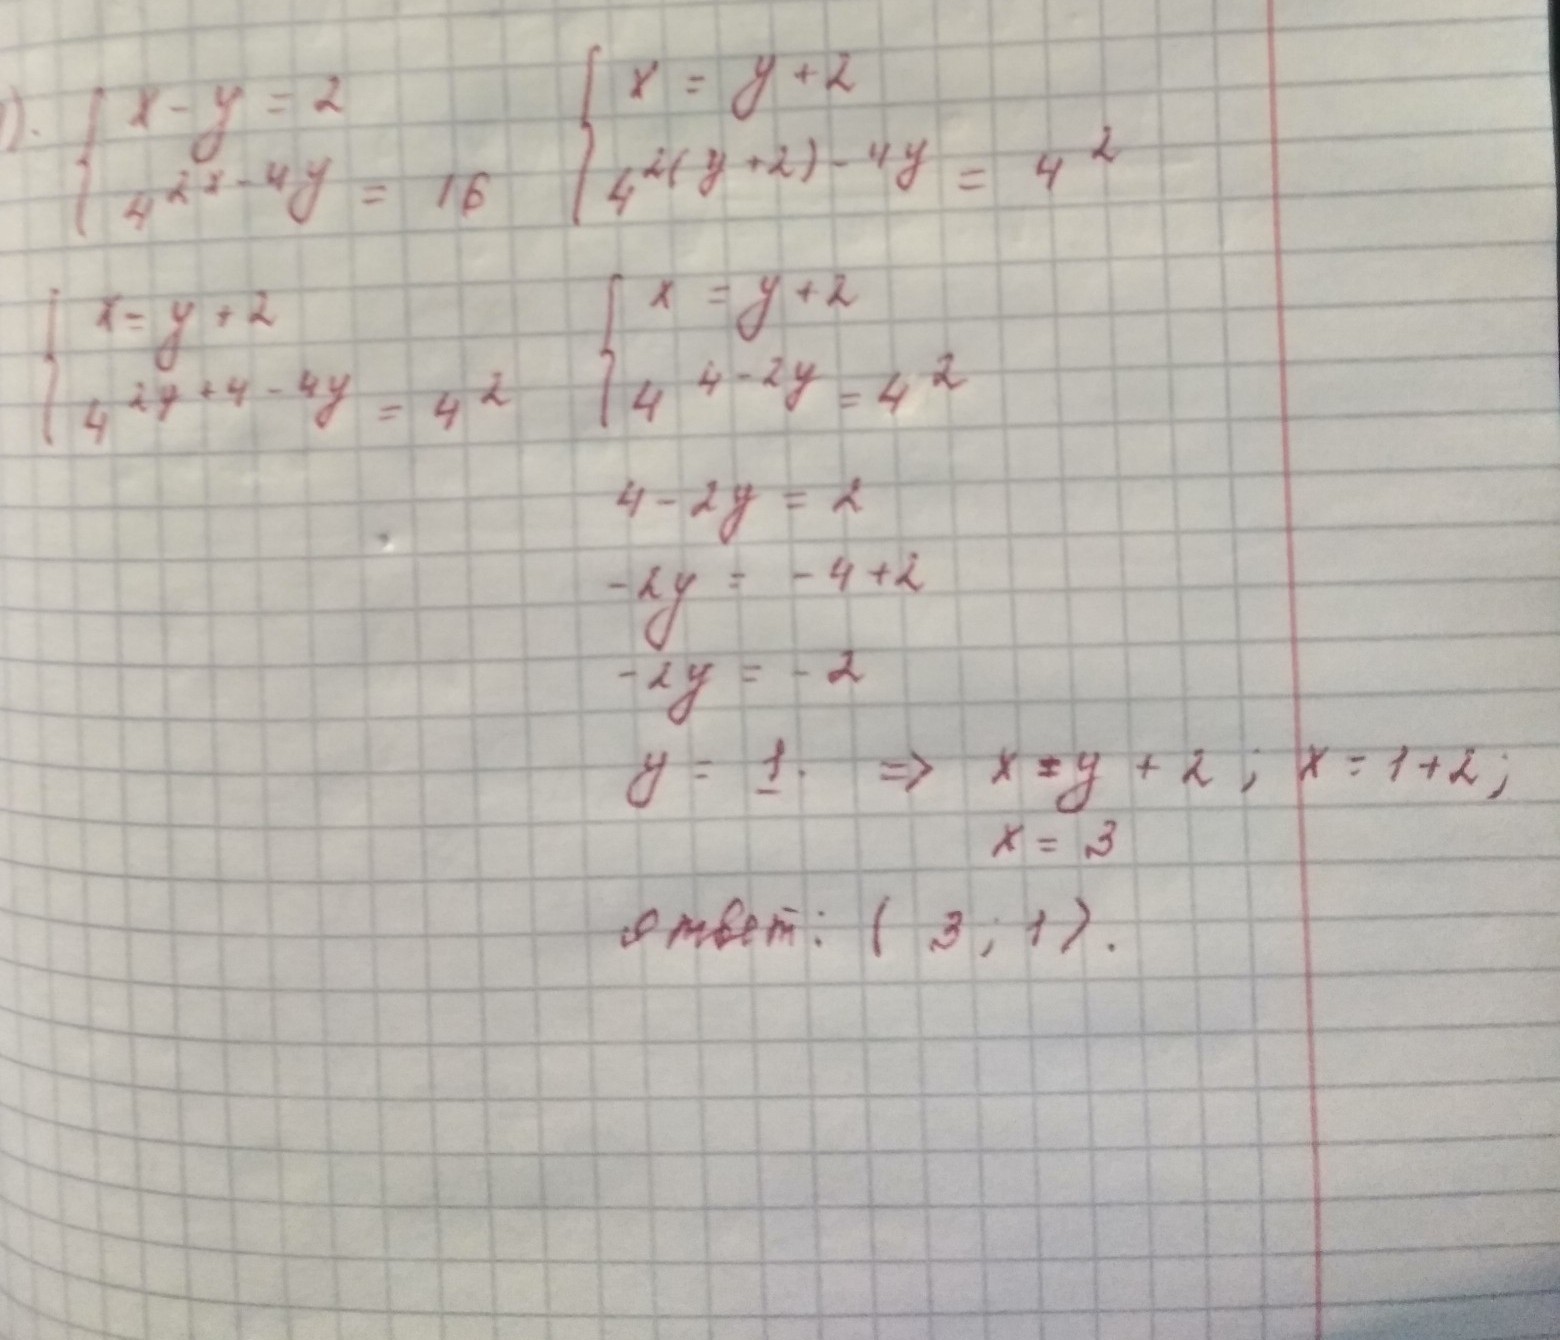 1). { x - y = 2
4^{2x - 4y} = 16
{ x = y + 2
4^{2(y + 2) - 4y} = 4^2
{ x = y + 2
4^{2y + 4 - 4y} = 4^2
{ x = y + 2
4^{4 - 2y} = 4^2
4 - 2y = 2
-2y = -4 + 2
-2y = -2
y = 1. => x = y + 2 ; x = 1 + 2;
x = 3
ответ: (3; 1).